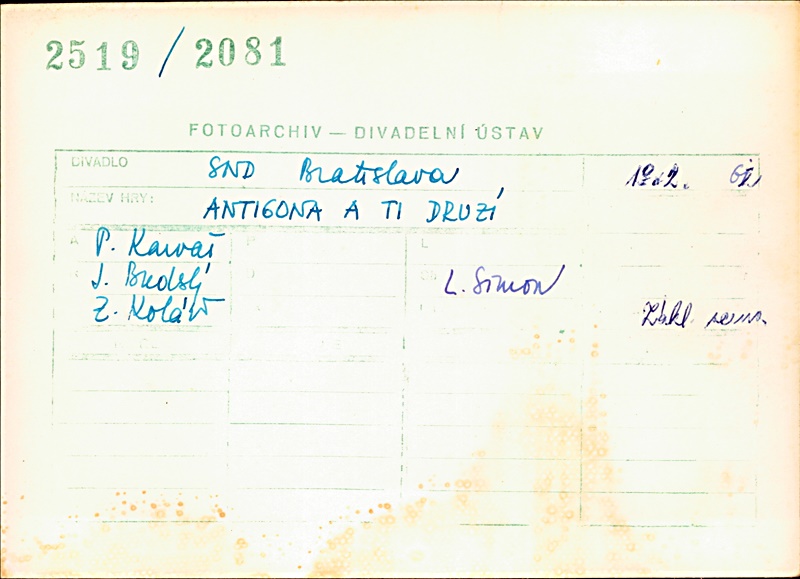 2519 / 2081
FOTOARCHIV — DIVADELNÍ ÚSTAV
DIVADLO SND Bratislava 1962.
NÁZEV HRY: ANTIGONA A TI DRUZÍ
A P. Karvaš P L
J. Budský L. Simon
Z. Kolář Zákl. sezn.